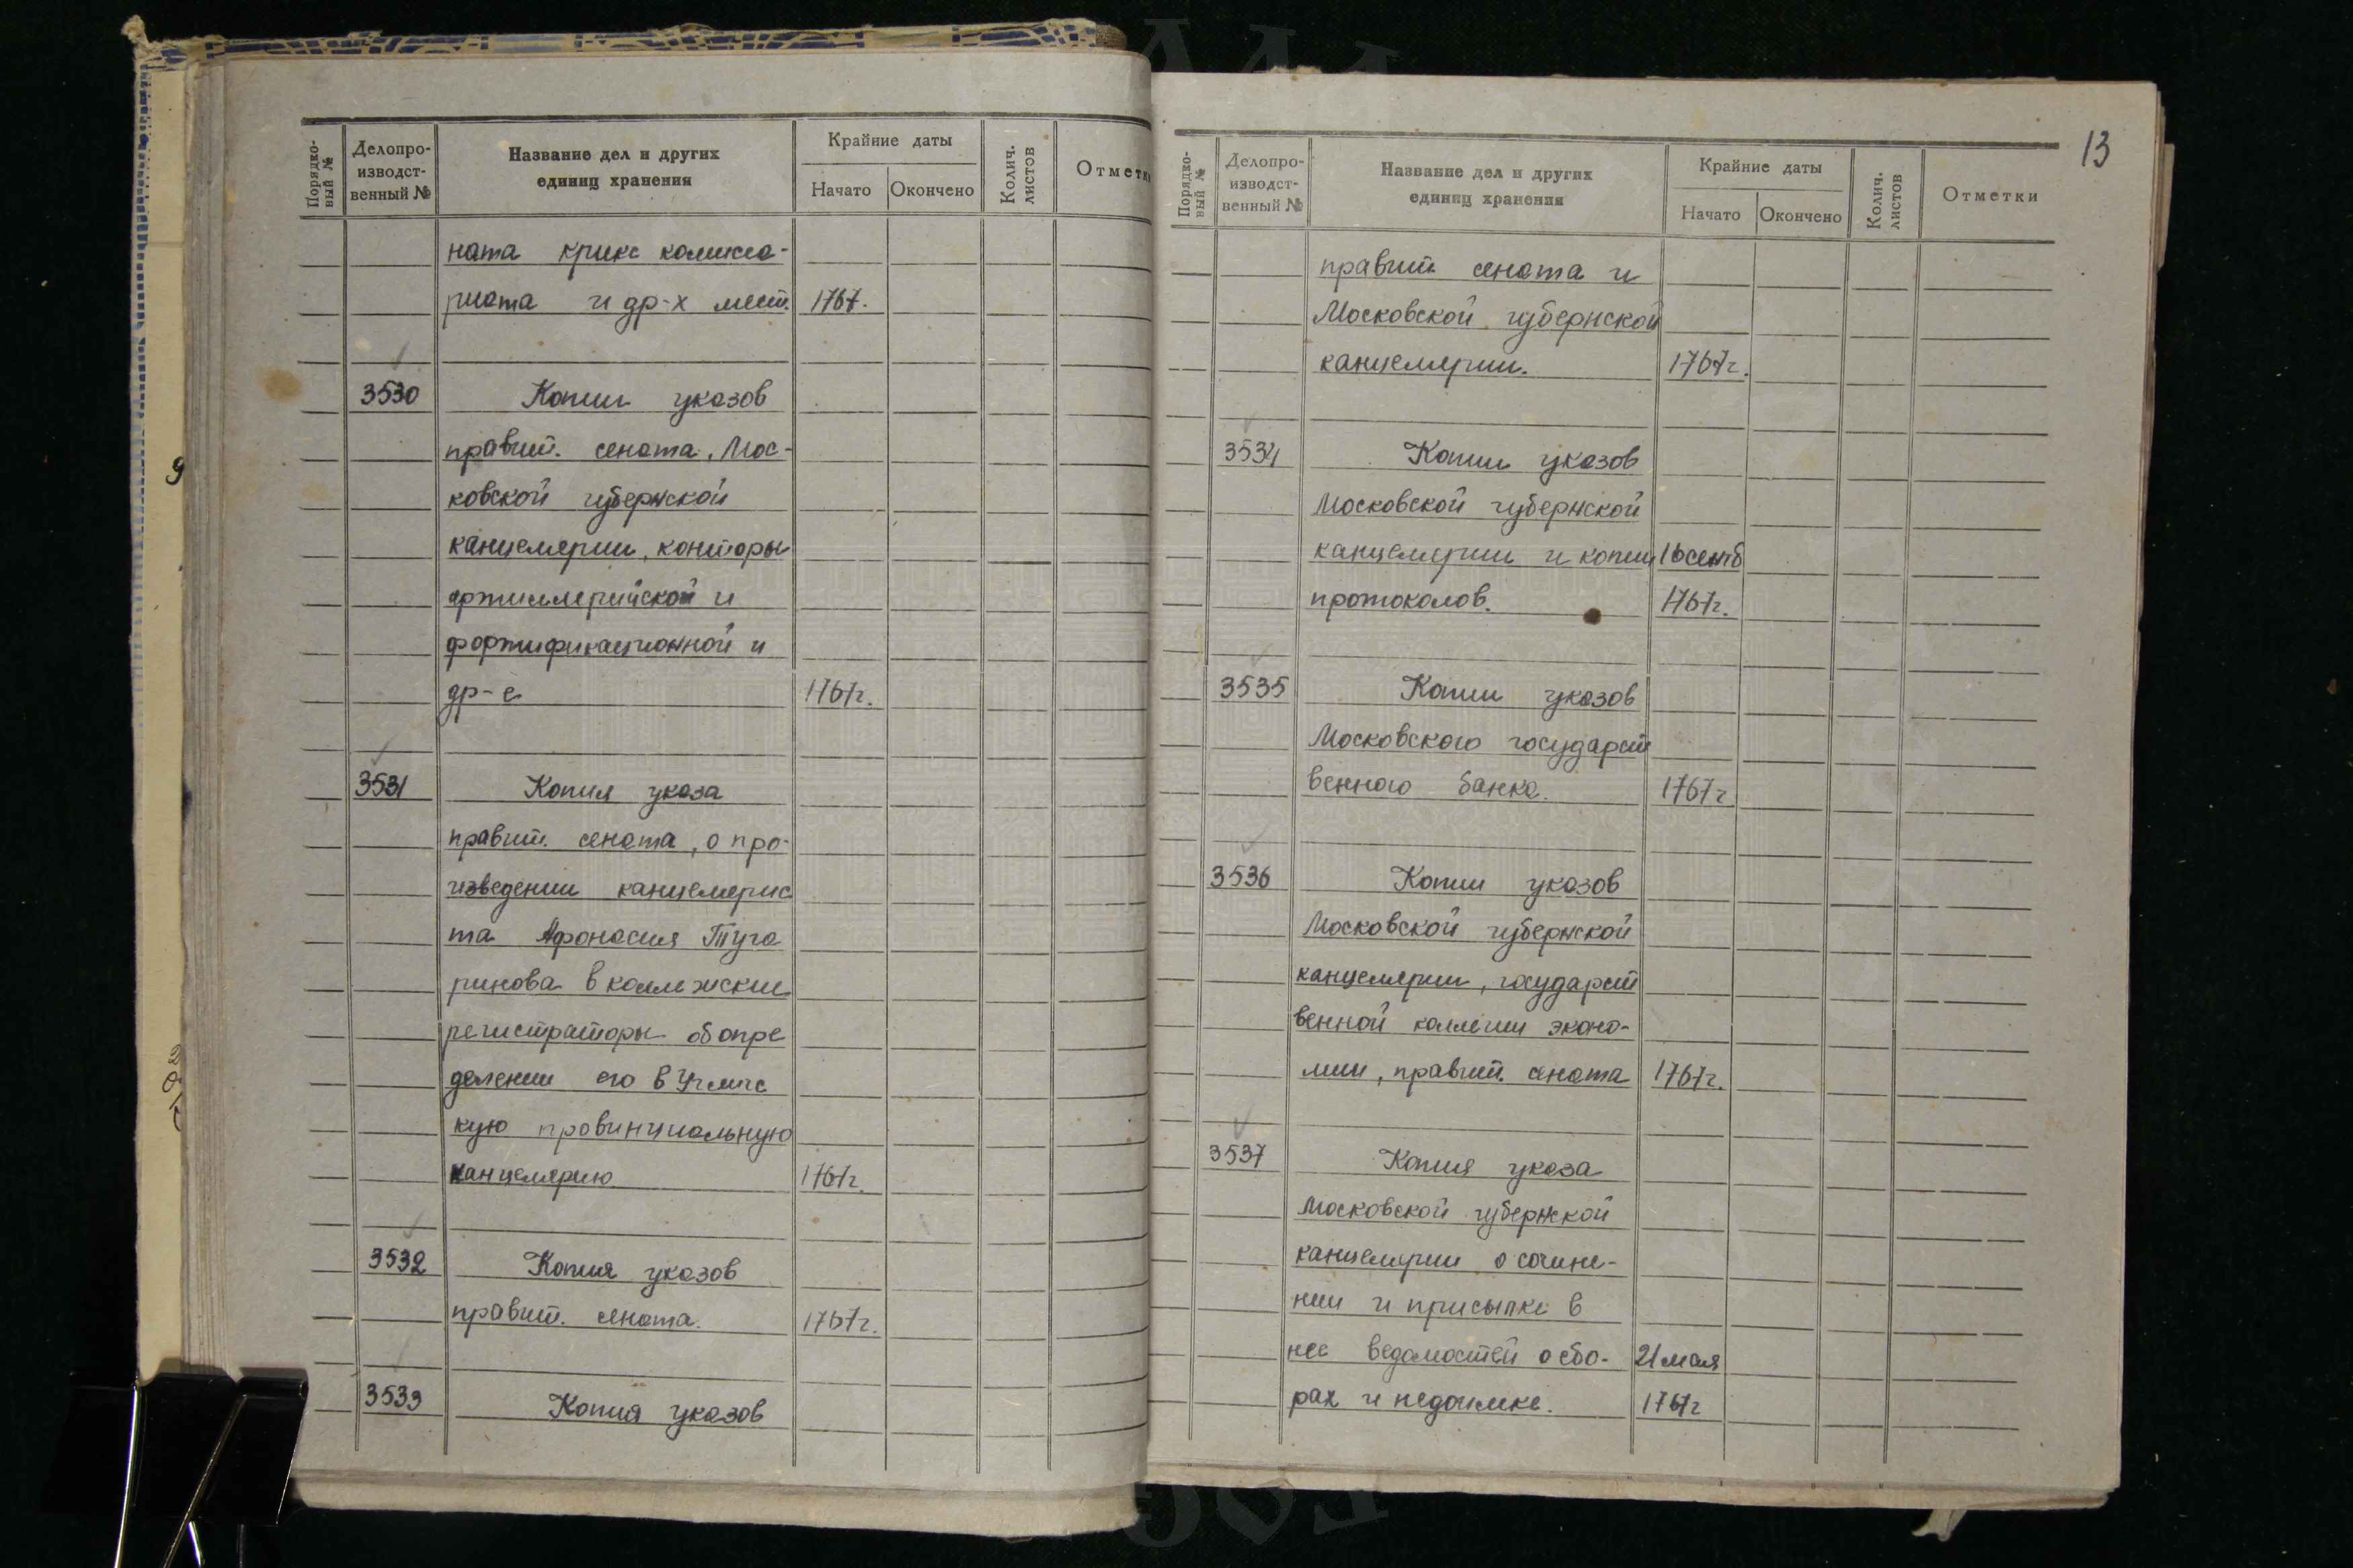 Порядко-
вый №
Делопро-
изводст-
венный №
Название дел и других
единиц хранения
Крайние даты
Начато
Окончено
Колич.
листов
Отметки
ната крикс комисса-
риата и др-х мест. 1767.
3530 Копии указов
правит. сената, Мос-
ковской губернской
канцелярии, конторы
артиллерийской и
фортификационной и
др-е 1767г.
3531 Копия указа
правит. сената, о про-
изведении канцелярис
та Афонасия Туга
ринова в коллежские
регистраторы об опре
делении его в Углич
кую провинциальную
канцелярию 1767г.
3532 Копия указов
правит. сената. 1767г.
3533 Копия указов
13
Порядко-
вый №
Делопро-
изводст-
венный №
Название дел и других
единиц хранения
Крайние даты
Начато
Окончено
Колич.
листов
Отметки
правит. сената и
Московской губернской
канцелярии. 1767г.
3534 Копии указов
Московской губернской
канцелярии и копии 16 сент
протоколов. 1767г.
3535 Копии указов
Московского государст
венного банка. 1767г
3536 Копии указов
Московской губернской
канцелярии, государст
венной коллегии эконо-
мии, правит. сената 1767г.
3537 Копия указа
Московской губернской
канцелярии о сочине-
нии и присылке в
нее ведомостей о сбо- 21 мая
рах и недоимке. 1767г